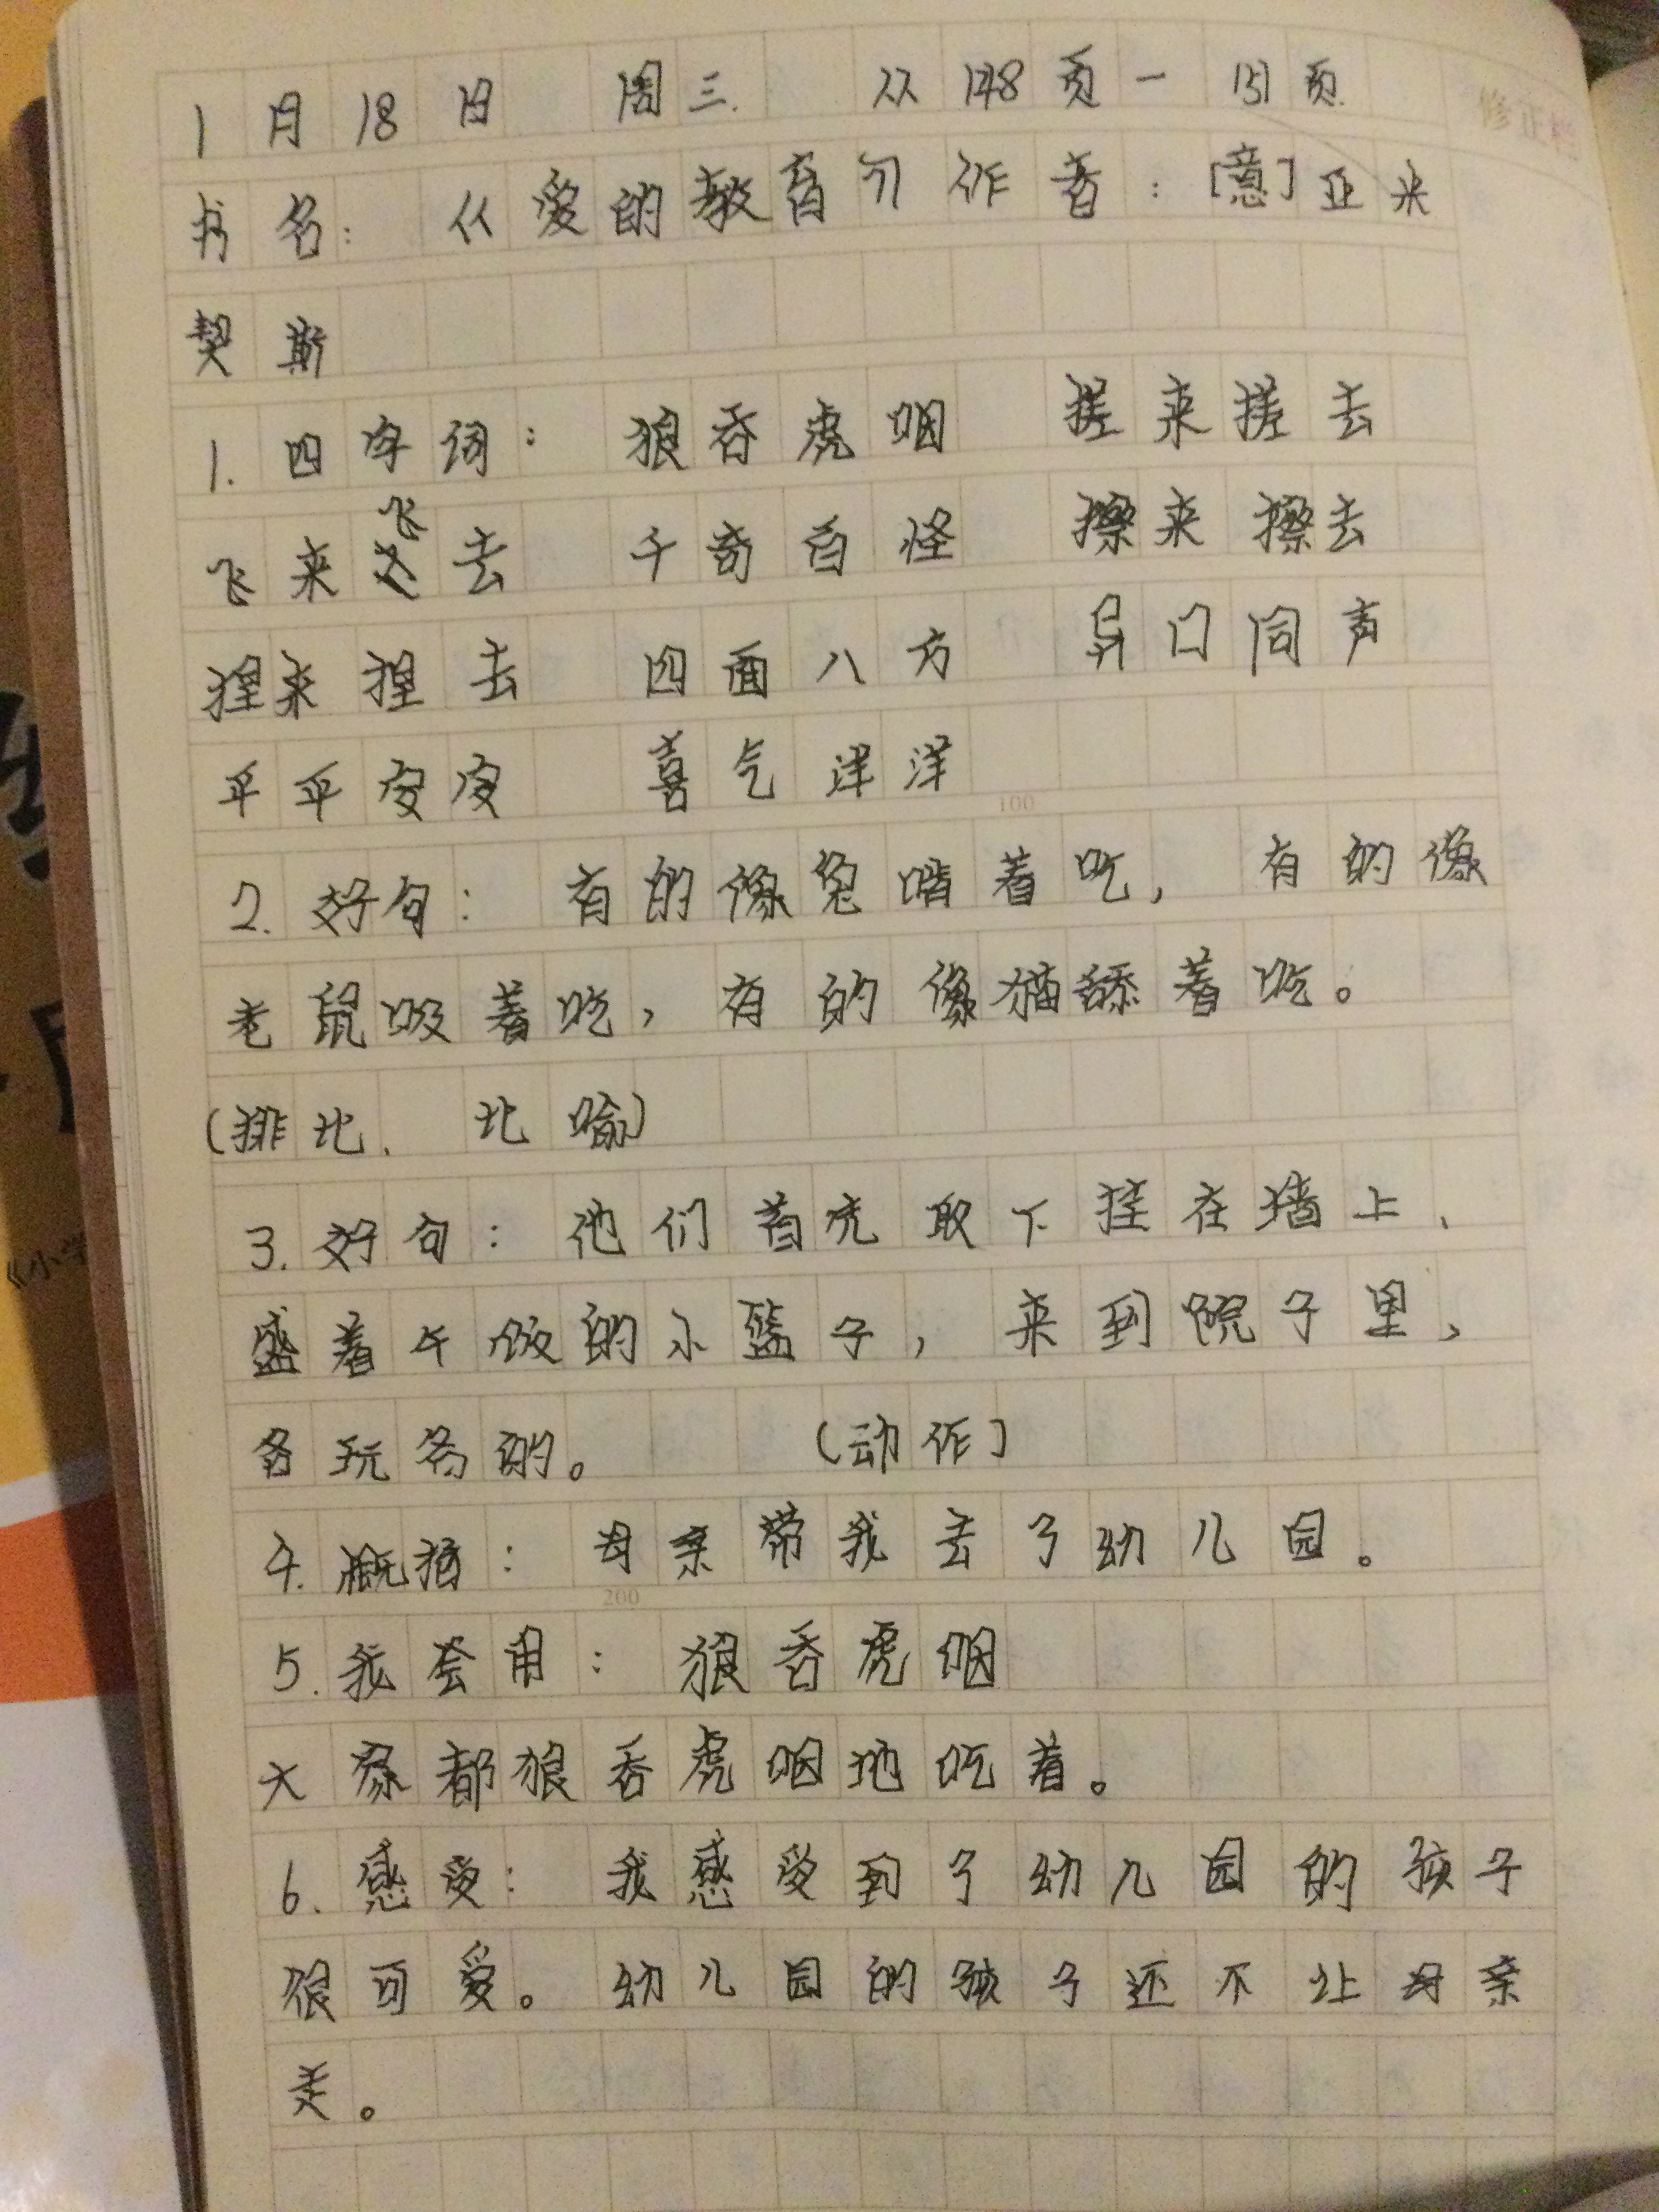 1月18日 周三. 从148页一151页.
修正栏
书名: 《爱的教育》作者:[意]亚米
契斯
1. 四字词: 狼吞虎咽 搓来搓去
飞来飞去 千奇百怪 擦来擦去
捏来捏去 四面八方 异口同声
平平安安 喜气洋洋
100
2. 好句: 有的像兔啃着吃, 有的像
老鼠吸着吃, 有的像猫舔着吃。
(排比、 比喻)
3. 好句: 他们首先取下挂在墙上、
盛着午饭的小篮子, 来到院子里,
各玩各的。 (动作]
4. 概括: 母亲带我去了幼儿园。
200
5. 我会用: 狼吞虎咽
大家都狼吞虎咽地吃着。
6. 感受: 我感受到了幼儿园的孩子
很可爱。幼儿园的孩子还不让母亲
走。
《小学